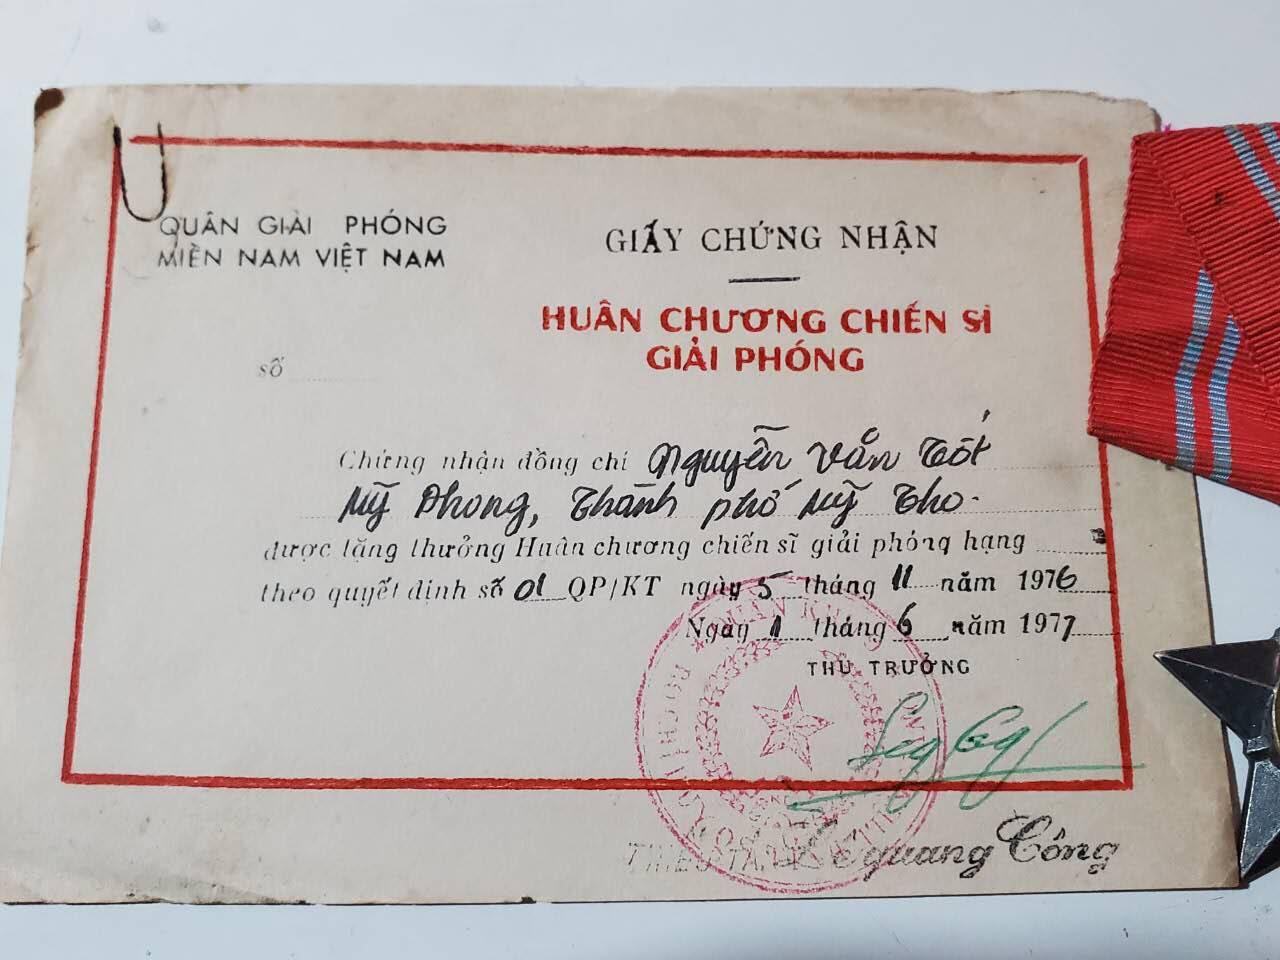 QUÂN GIẢI PHÓNG
MIỀN NAM VIỆT NAM
GIẤY CHỨNG NHẬN
HUÂN CHƯƠNG CHIẾN SĨ
GIẢI PHÓNG
số
Chứng nhận đồng chí Nguyễn Văn Tốt
Mỹ Phong, Thành phố Mỹ Tho.
được tặng thưởng Huân chương chiến sĩ giải phóng hạng
theo quyết định số 01 QP/KT ngày 5 tháng 11 năm 1976
Ngày 1 tháng 6 năm 1977
THỦ TRƯỞNG
quang Công